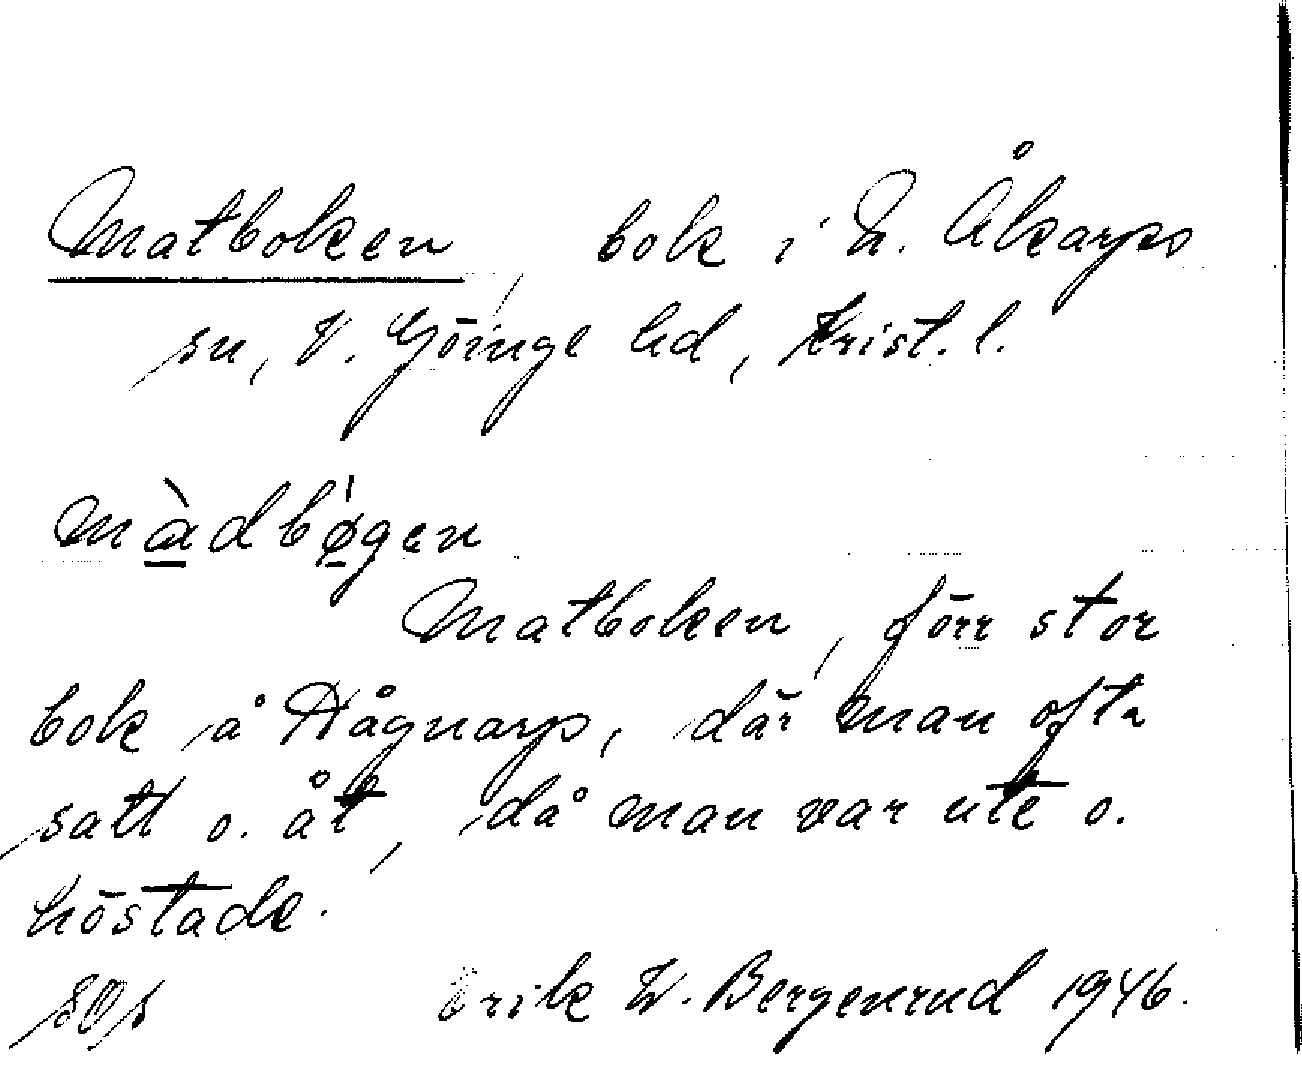 Matboken, bok i N. Åkarps
sn, V. Göinge hd, Krist. l.
màdbøgen
Matboken, förr stor
bok å Hågnarp, där man ofta
satt o. åt, då man var ute o.
höstade.
Erik W. Bergenrud 1946.